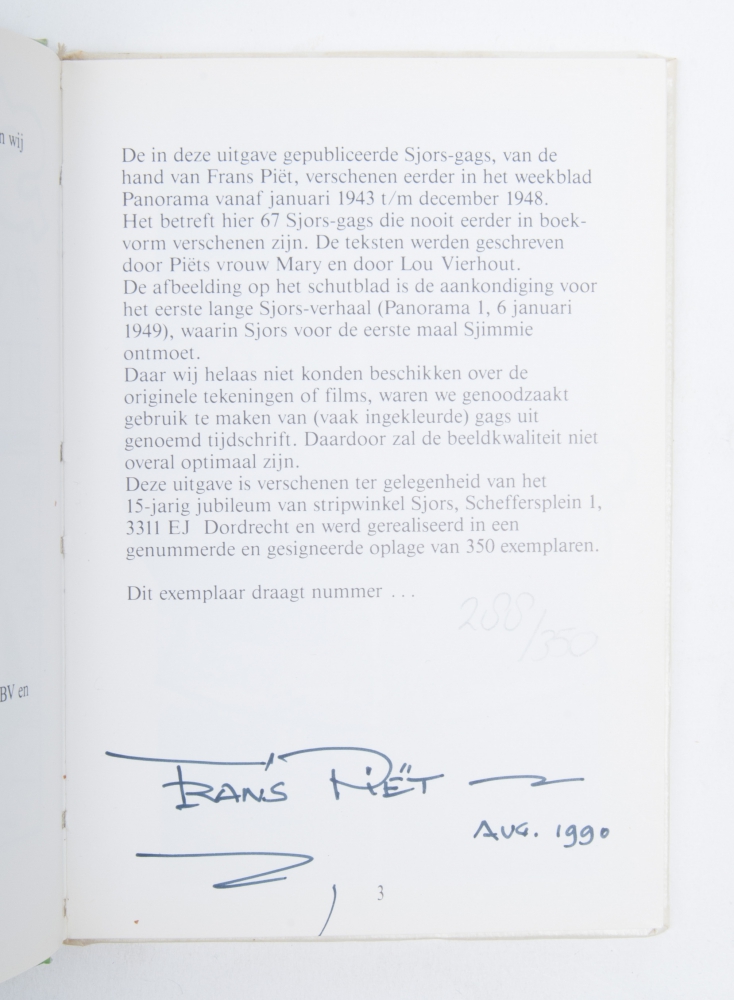 n wij
De in deze uitgave gepubliceerde Sjors-gags, van de
hand van Frans Piët, verschenen eerder in het weekblad
Panorama vanaf januari 1943 t/m december 1948.
Het betreft hier 67 Sjors-gags die nooit eerder in boek-
vorm verschenen zijn. De teksten werden geschreven
door Piëts vrouw Mary en door Lou Vierhout.
De afbeelding op het schutblad is de aankondiging voor
het eerste lange Sjors-verhaal (Panorama 1, 6 januari
1949), waarin Sjors voor de eerste maal Sjimmie
ontmoet.
Daar wij helaas niet konden beschikken over de
originele tekeningen of films, waren we genoodzaakt
gebruik te maken van (vaak ingekleurde) gags uit
genoemd tijdschrift. Daardoor zal de beeldkwaliteit niet
overal optimaal zijn.
Deze uitgave is verschenen ter gelegenheid van het
15-jarig jubileum van stripwinkel Sjors, Scheffersplein 1,
3311 EJ Dordrecht en werd gerealiseerd in een
genummerde en gesigneerde oplage van 350 exemplaren.
Dit exemplaar draagt nummer ...
288/350
BV en
FRANS PIËT
AUG. 1990
3